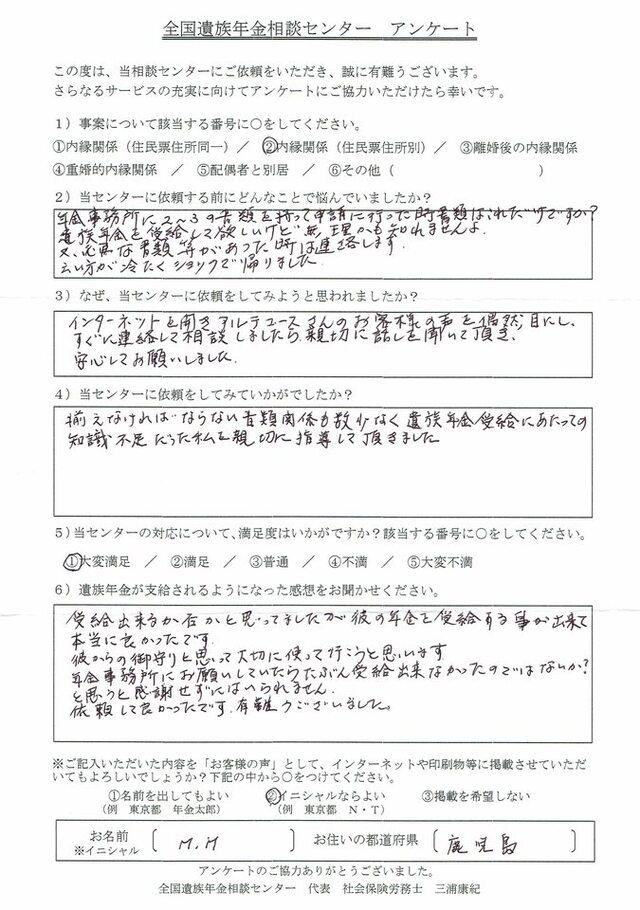 全国遺族年金相談センター　アンケート
この度は、当相談センターにご依頼をいただき、誠に有難うございます。
さらなるサービスの充実に向けてアンケートにご協力いただけたら幸いです。
1）事案について該当する番号に○をしてください。
①内縁関係（住民票住所同一）／　②内縁関係（住民票住所別）／　③離婚後の内縁関係
④重婚的内縁関係　／　⑤配偶者と別居　／　⑥その他（　　　　　　　　）
2）当センターに依頼する前にどんなことで悩んでいましたか？
年金事務所に2〜3の書類を持って申請に行った時書類はこれだけですか？
遺族年金を受給して欲しいけど無理かも知れませんよ
又、必要な書類等があった時は連絡します。
云い方が冷たくショックで帰りました。
3）なぜ、当センターに依頼をしてみようと思われましたか？
インターネットを開きアルテユースさんのお客様の声を偶然目にし、
すぐに連絡して相談しましたら親切に話しを聞いて頂き、
安心してお願いしました。
4）当センターに依頼をしてみていかがでしたか？
揃えなければならない書類関係も数少なく遺族年金受給にあたっての
知識不足だった私を親切に指導して頂きました
5）当センターの対応について、満足度はいかがですか？該当する番号に○をしてください。
①大変満足　／　②満足　／　③普通　／　④不満　／　⑤大変不満
6）遺族年金が支給されるようになった感想をお聞かせください。
受給出来るか否かと思ってましたが彼の年金を受給する事が出来て
本当に良かったです。
彼からの御守りと思って大切に使って行こうと思います
年金事務所にお願いしていたらたぶん受給出来なかったのではないか？
と思うと感謝せずにはいられません。
依頼して良かったです。有難うございました。
※ご記入いただいた内容を「お客様の声」として、インターネットや印刷物等に掲載させていただ
いてもよろしいでしょうか？下記の中から○をつけてください。
①名前を出してもよい　②イニシャルならよい　③掲載を希望しない
（例　東京都　年金太郎）　（例　東京都　N・T）
お名前　※イニシャル　〔　M.M　〕　お住いの都道府県　〔　鹿児島　〕
アンケートのご協力ありがとうございました。
全国遺族年金相談センター　代表　社会保険労務士　三浦康紀